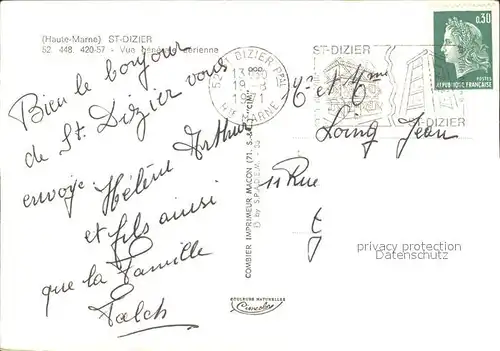 (Haute-Marne) ST-DIZIER
52. 448. 420-57 - Vue générale aérienne
Bien le bonjour
de St. Dizier vous
envoye. Hélène Arthur
et fils ainsi
que la Famille
Falch
COMBIER IMPRIMEUR MACON (71, S.-&-L.) "CIM"
© by S.P.A.D.E.M.
COULEURS NATURELLES
Cimcolor
ST-DIZIER PPAL
HTE MARNE
ST-DIZIER
ST-DIZIER
0,30
POSTES
REPUBLIQUE FRANÇAISE
Mr et Mme
Jean
11 Rue
privacy protection
Datenschutz